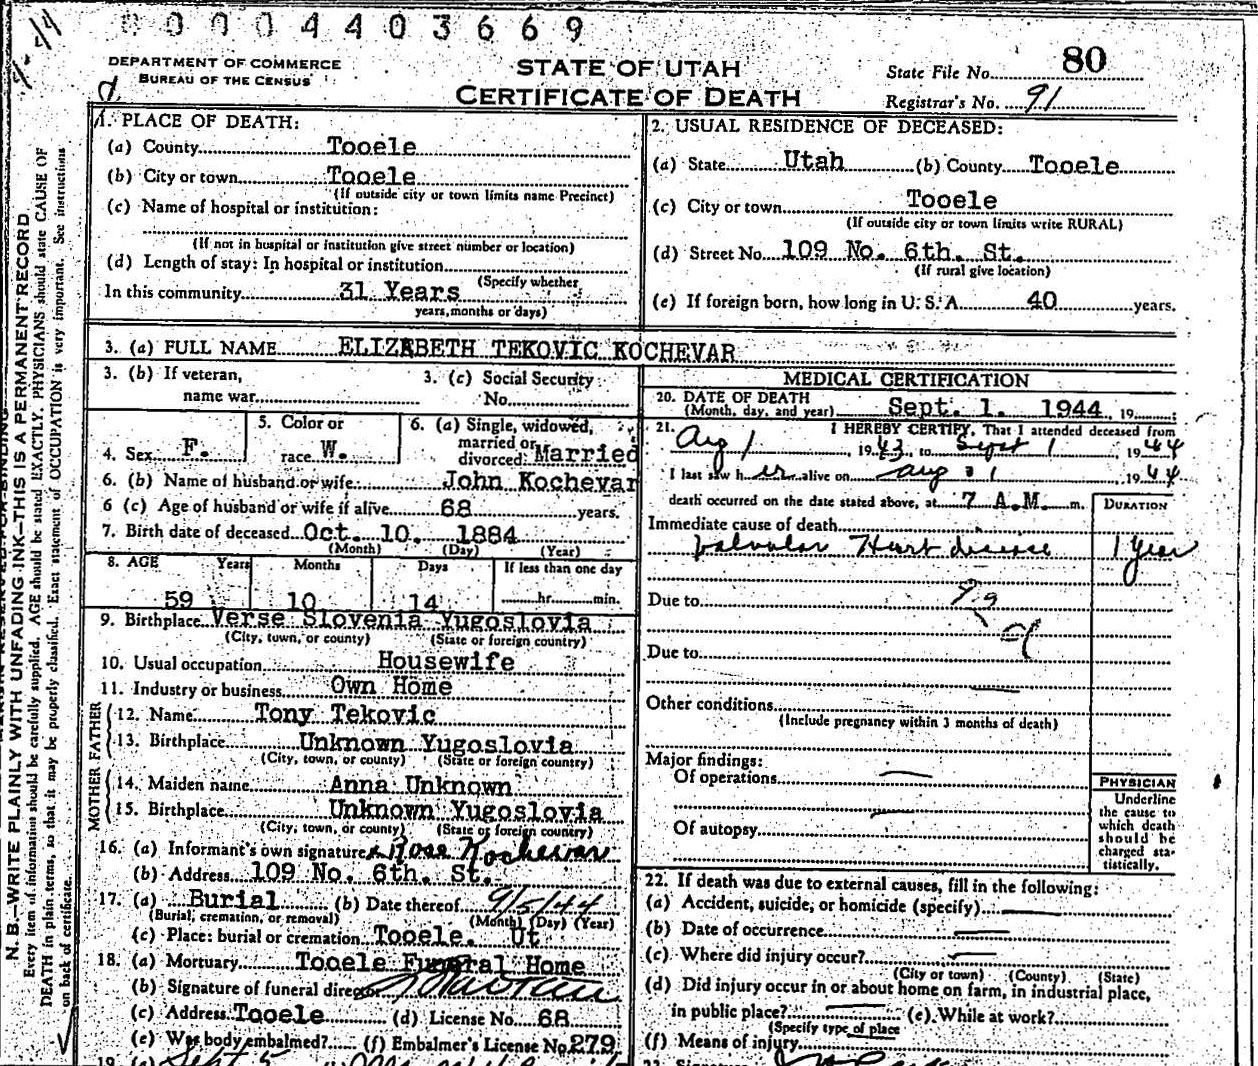 0 0 0 4 4 0 3 6 6 9
DEPARTMENT OF COMMERCE
BUREAU OF THE CENSUS
STATE OF UTAH
CERTIFICATE OF DEATH
State File No. 80
Registrar's No. 91
1. PLACE OF DEATH:
(a) County Tooele
(b) City or town Tooele
(If outside city or town limits name Precinct)
(c) Name of hospital or institution:
(If not in hospital or institution give street number or location)
(d) Length of stay: In hospital or institution
(Specify whether
In this community 31 Years
years, months or days)
2. USUAL RESIDENCE OF DECEASED:
(a) State Utah (b) County Tooele
(c) City or town Tooele
(If outside city or town limits write RURAL)
(d) Street No. 109 No. 6th. St.
(If rural give location)
(e) If foreign born, how long in U. S. A. 40 years.
3. (a) FULL NAME ELIZABETH TEKOVIC KOCHEVAR
3. (b) If veteran,
name war
3. (c) Social Security
No.
4. Sex F.
5. Color or
race W.
6. (a) Single, widowed,
married or
divorced: Married
6. (b) Name of husband or wife John Kochevar
6 (c) Age of husband or wife if alive 68 years.
7. Birth date of deceased Oct. 10. 1884
(Month) (Day) (Year)
8. AGE Years Months Days If less than one day
59 10 14 hr. min.
9. Birthplace Verse Slovenia Yugoslovia
(City, town, or county) (State or foreign country)
10. Usual occupation Housewife
11. Industry or business Own Home
FATHER
12. Name Tony Tekovic
13. Birthplace Unknown Yugoslovia
(City, town, or county) (State or foreign country)
MOTHER
14. Maiden name Anna Unknown
15. Birthplace Unknown Yugoslovia
(City, town, or county) (State or foreign country)
16. (a) Informant's own signature x Rose Kochevar
(b) Address 109 No. 6th. St.
17. (a) Burial (b) Date thereof 9/5/44
(Burial, cremation, or removal) (Month) (Day) (Year)
(c) Place: burial or cremation Tooele. Ut
18. (a) Mortuary Tooele Funeral Home
(b) Signature of funeral director
(c) Address Tooele (d) License No. 68
(e) Was body embalmed? (f) Embalmer's License No. 279
19. (a) Sept 5
MEDICAL CERTIFICATION
20. DATE OF DEATH
(Month, day, and year) Sept. 1. 1944, 19
21. I HEREBY CERTIFY, That I attended deceased from
Aug 1, 1943, to Sept 1, 1944
I last saw her alive on aug 31, 1944
death occurred on the date stated above, at 7 A.M. m.
DURATION
Immediate cause of death
Valvular Heart disease 1 year
Due to
Due to
Other conditions
(Include pregnancy within 3 months of death)
Major findings:
Of operations
Of autopsy
PHYSICIAN
Underline
the cause to
which death
should be
charged sta-
tistically.
22. If death was due to external causes, fill in the following:
(a) Accident, suicide, or homicide (specify)
(b) Date of occurrence
(c) Where did injury occur?
(City or town) (County) (State)
(d) Did injury occur in or about home on farm, in industrial place,
in public place? (e) While at work?
(Specify type of place
(f) Means of injury
N. B.—WRITE PLAINLY WITH UNFADING INK—THIS IS A PERMANENT RECORD
Every item of information should be carefully supplied. AGE should be stated EXACTLY. PHYSICIANS should state CAUSE OF
DEATH in plain terms, so that it may be properly classified. Exact statement of OCCUPATION is very important. See instructions
on back of certificate.